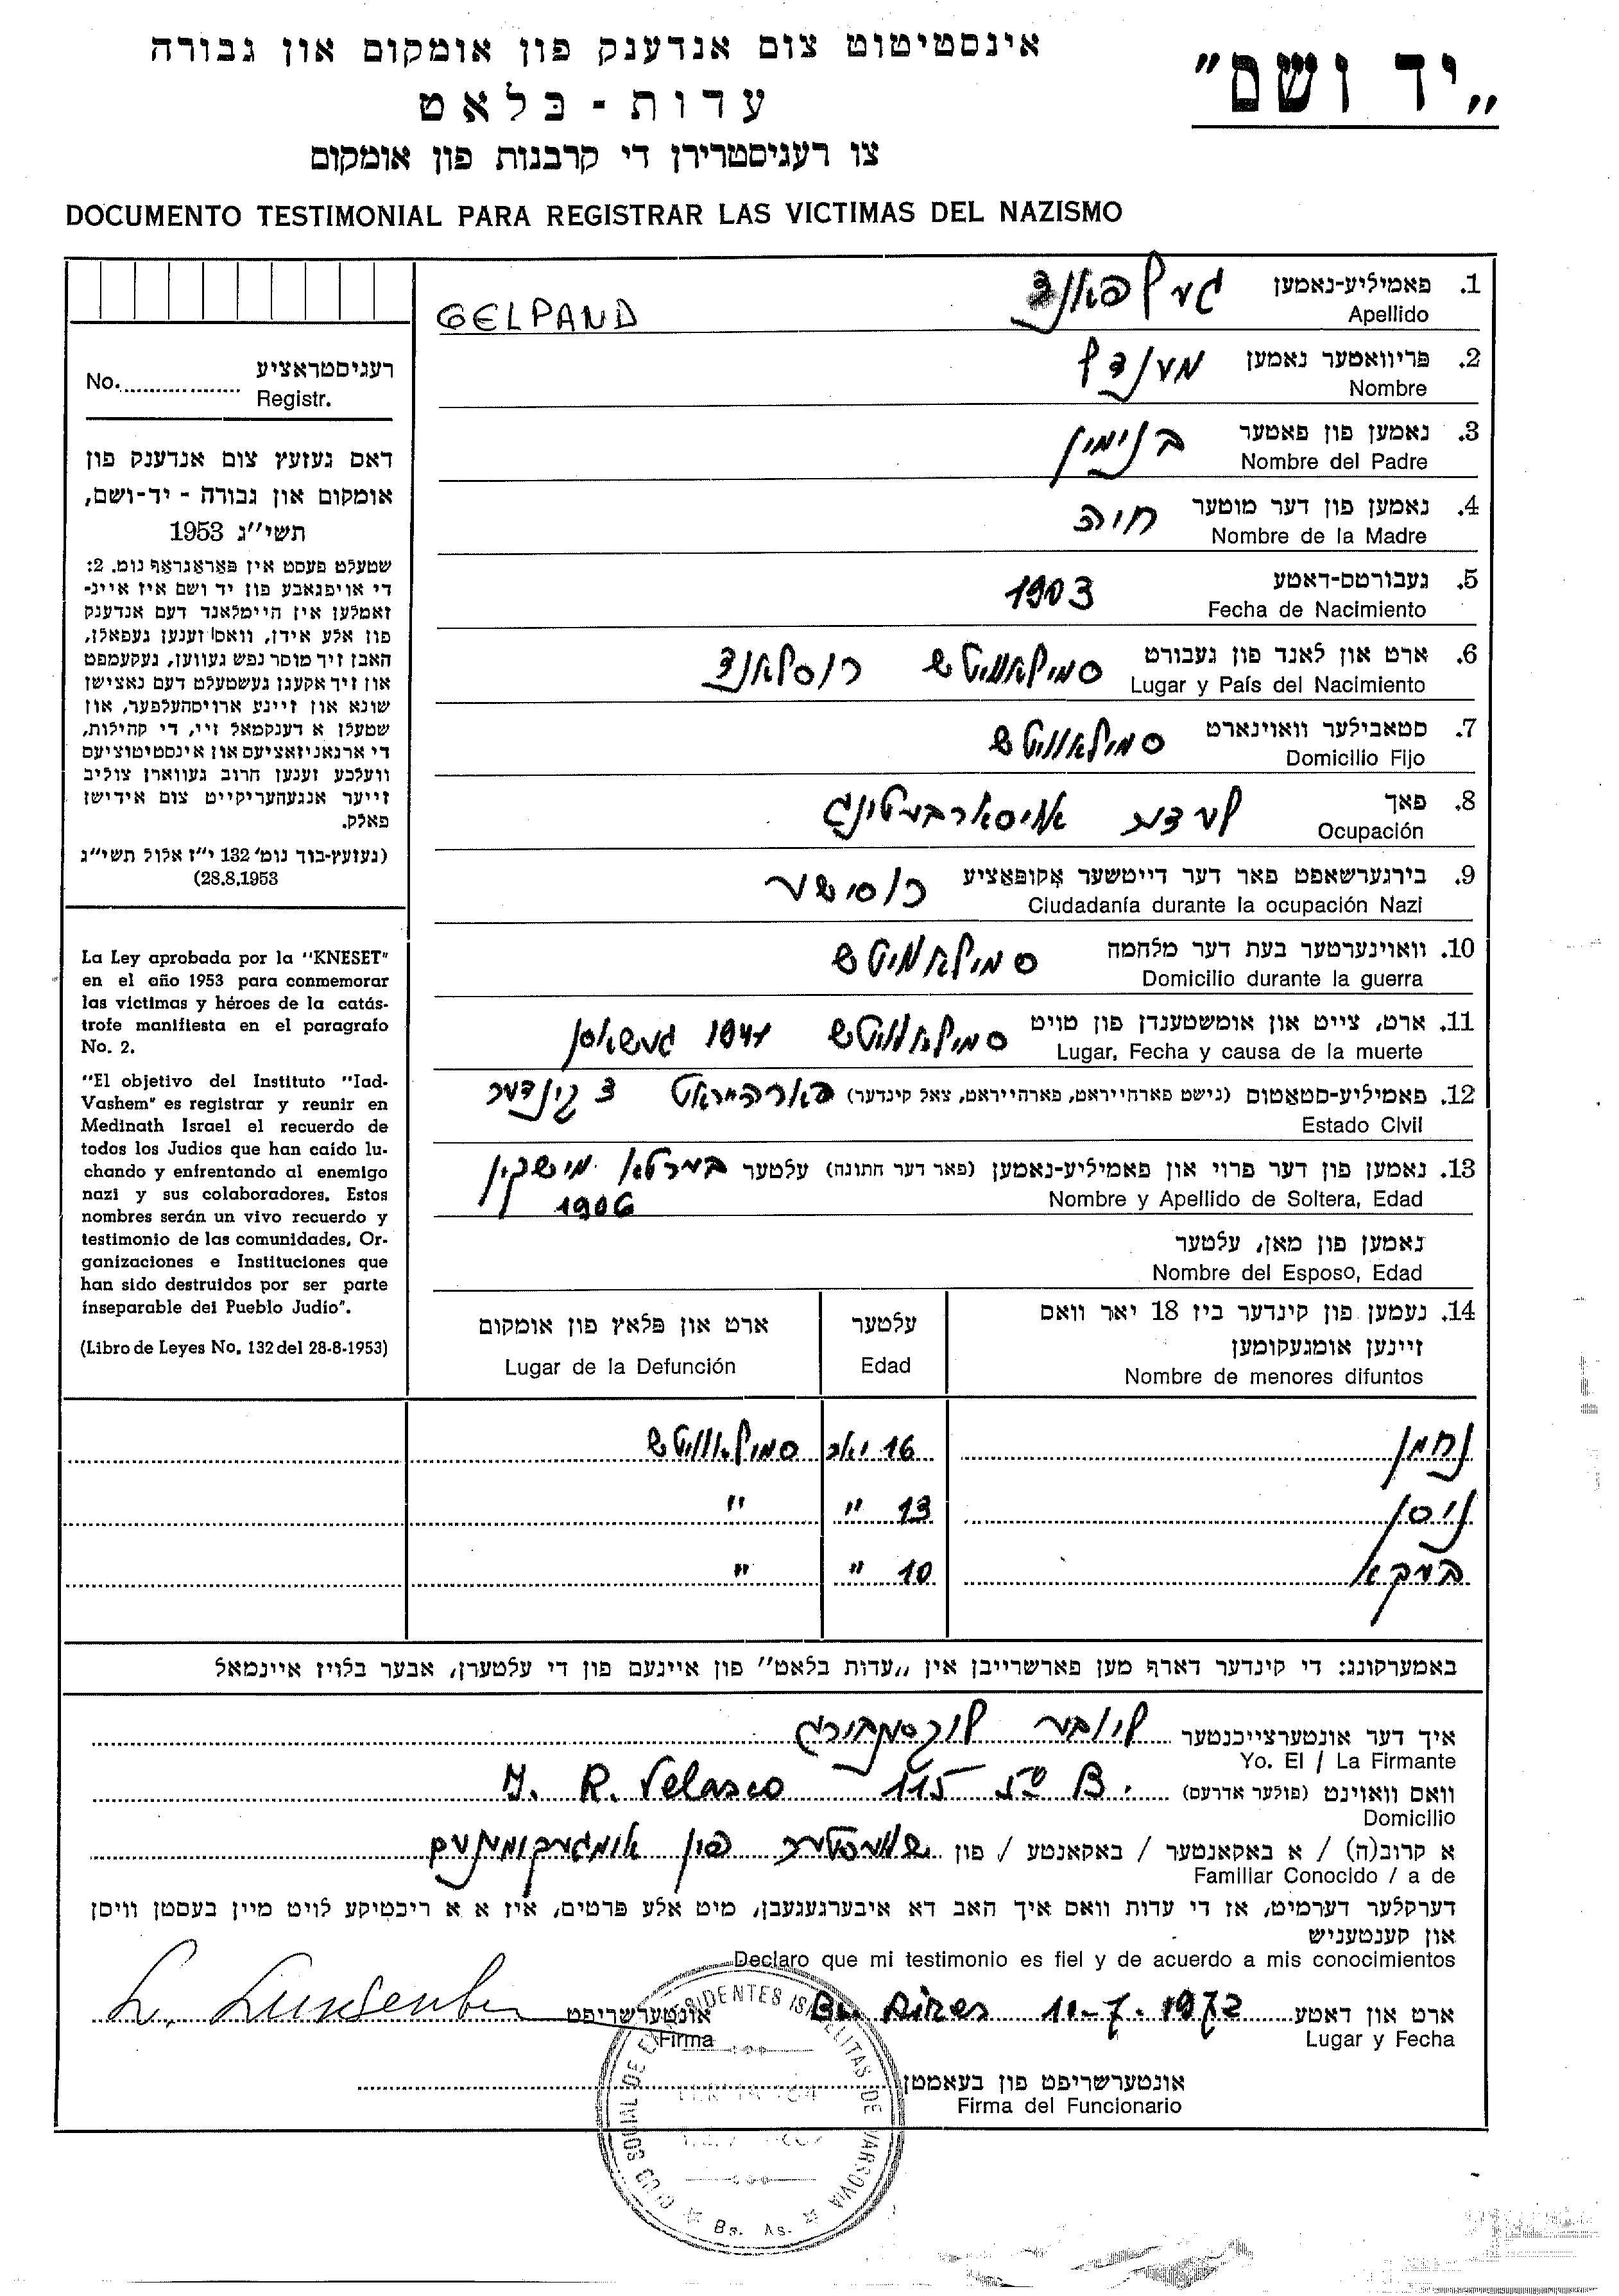 „יד ושם"
אינסטיטוט צום אנדענק פון אומקום און גבורה
עדות - בלאט
צו רעגיסטרירן די קרבנות פון אומקום
DOCUMENTO TESTIMONIAL PARA REGISTRAR LAS VICTIMAS DEL NAZISMO
1. פאמיליע-נאמען געלפאנד GELPAND
Apellido
2. פריוואטער נאמען מענדל
Nombre
3. נאמען פון פאטער בנימין
Nombre del Padre
4. נאמען פון דער מוטער חוה
Nombre de la Madre
5. געבורטס-דאטע 1903
Fecha de Nacimiento
6. ארט און לאנד פון געבורט סמילאוויטש רוסלאנד
Lugar y País del Nacimiento
7. סטאבילער וואוינארט סמילאוויטש
Domicilio Fijo
8. פאך לעדער אויסארבעטונג
Ocupación
9. בירגערשאפט פאר דער דייטשער אקופאציע רוסישער
Ciudadanía durante la ocupación Nazi
10. וואוינערטער בעת דער מלחמה סמילאוויטש
Domicilio durante la guerra
11. ארט, צייט און אומשטענדן פון טויט סמילאוויטש 1941 געשאסן
Lugar, Fecha y causa de la muerte
12. פאמיליע-סטאטוס (נישט פארהייראט, פארהייראט, צאל קינדער) פארהייראט 3 קינדער
Estado Civil
13. נאמען פון דער פרוי און פאמיליע-נאמען (פאר דער חתונה) עלטער בערטא מישקין
Nombre y Apellido de Soltera, Edad 1906
נאמען פון מאן, עלטער
Nombre del Esposo, Edad
14. נעמען פון קינדער ביז 18 יאר וואס עלטער ארט און פלאץ פון אומקום
זיינען אומגעקומען
Nombre de menores difuntos Edad Lugar de la Defunción
נחמן 16 יאר סמילאוויטש
ניסן 13 " "
10 " "
רעגיסטראציע
No. Registr.
דאס געזעץ צום אנדענק פון
אומקום און גבורה - יד-ושם,
תשי"ג 1953
שטעלט פעסט אין פאראגראף נומ. 2:
די אויפגאבע פון יד ושם איז איינ-
זאמלען אין היימלאנד דעם אנדענק
פון אלע אידן, וואס זענען געפאלן,
האבן זיך מוסר נפש געווען, געקעמפט
און זיך אקעגן געשטעלט דעם נאצישן
שונא און זיינע ארויסהעלפער, און
שטעלן א דענקמאל זיי, די קהילות,
די ארגאניזאציעס און אינסטיטוציעס
וועלכע זענען חרוב געווארן צוליב
זייער אנגעהעריקייט צום אידישן
פאלק.
(געזעץ-בוך נומ' 132 י"ז אלול תשי"ג
28.8.1953)
La Ley aprobada por la "KNESET"
en el año 1953 para conmemorar
las victimas y héroes de la catás-
trofe manifiesta en el paragrafo
No. 2.
"El objetivo del Instituto "Iad-
Vashem" es registrar y reunir en
Medinath Israel el recuerdo de
todos los Judios que han caído lu-
chando y enfrentando al enemigo
nazi y sus colaboradores. Estos
nombres serán un vivo recuerdo y
testimonio de las comunidades, Or-
ganizaciones e Instituciones que
han sido destruidos por ser parte
inseparable del Pueblo Judío".
(Libro de Leyes No. 132 del 28-8-1953)
באמערקונג: די קינדער דארף מען פארשרייבן אין „עדות בלאט" פון איינעם פון די עלטערן, אבער בלויז איינמאל
איך דער אונטערצייכנטער ליובע לוקסמבורג
Yo. El / La Firmante
וואס וואוינט (פולער אדרעס) M. R. Velasco 115 5º B.
Domicilio
א קרוב(ה) / א באקאנטער / באקאנטע / פון שוועסטער פון אומגעקומענעם
Familiar Conocido / a de
דערקלער דערמיט, אז די עדות וואס איך האב דא איבערגעגעבן, מיט אלע פרטים, איז א א ריכטיקע לויט מיין בעסטן וויסן
און קענטעניש
Declaro que mi testimonio es fiel y de acuerdo a mis conocimientos
ארט און דאטע Bs Aires 10-7-1972 אונטערשריפט
Lugar y Fecha Firma
אונטערשריפט פון בעאמטן
Firma del Funcionario
SOCIAL DE RESIDENTES ISRAELITAS DE VARSOVIA
Bs. As.